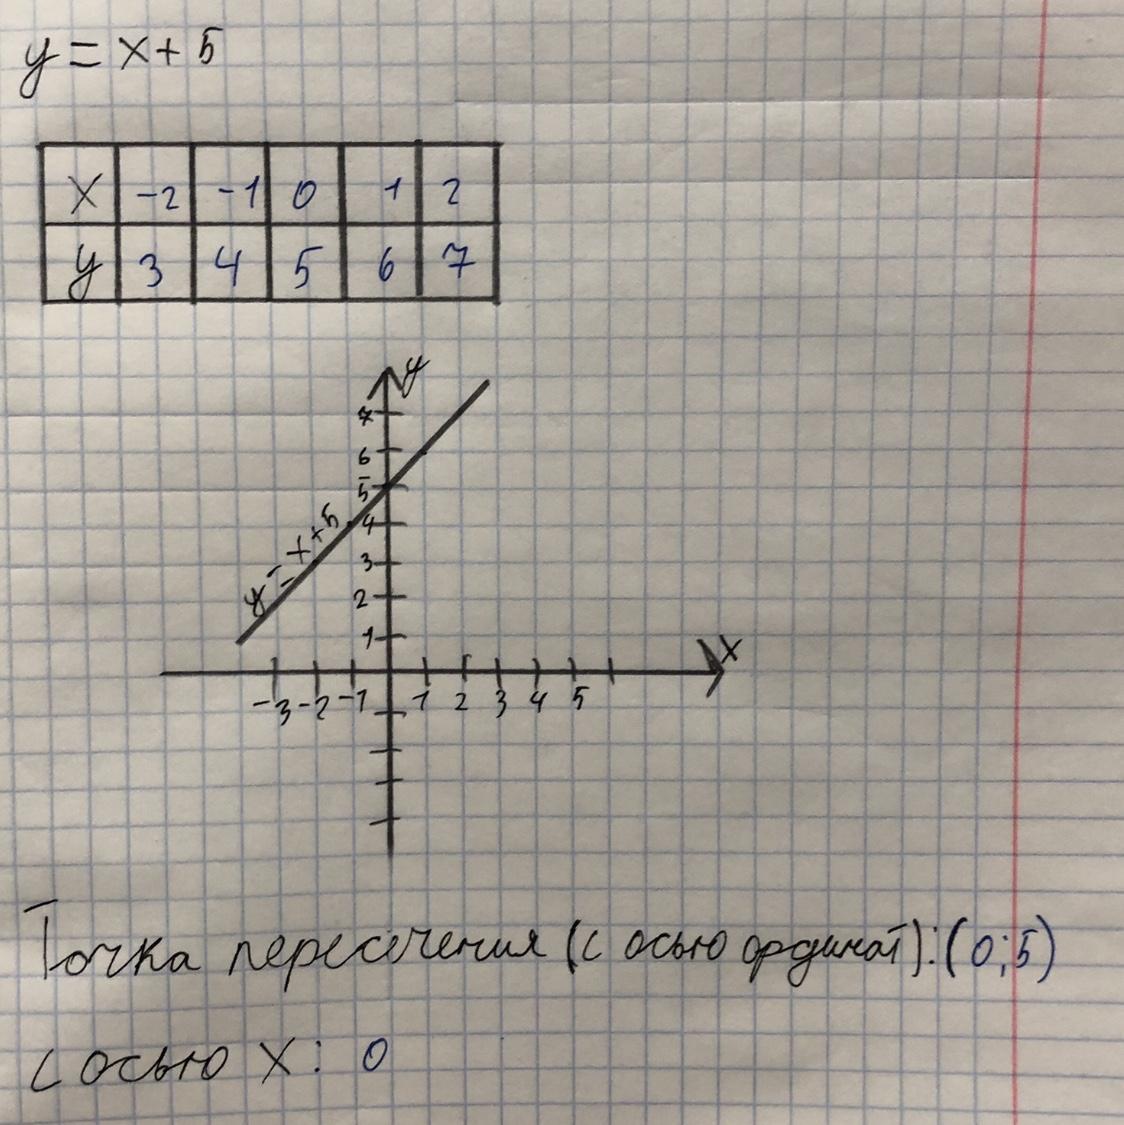 y = x + 5
x -2 -1 0 1 2
y 3 4 5 6 7
y
7
6
5
y = x + 5
4
3
2
1
x
-3 -2 -1 1 2 3 4 5
Точка пересечения (с осью ординат): (0;5)
с осью x: 0